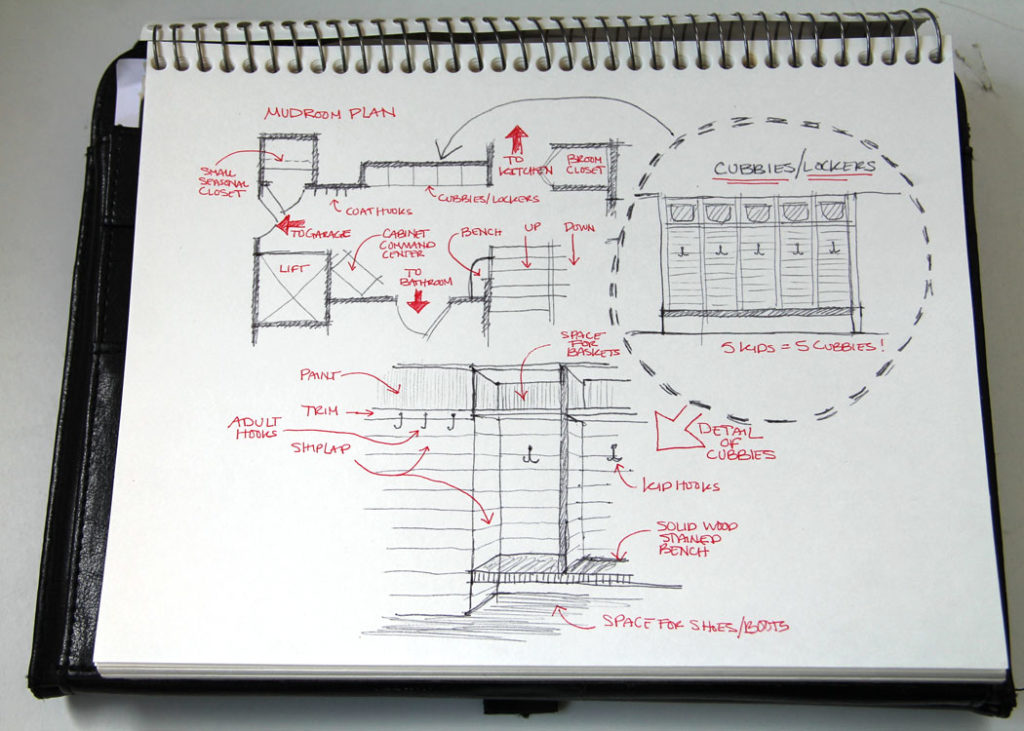 MUDROOM PLAN
SMALL
SEASONAL
CLOSET
COAT HOOKS
CUBBIES/LOCKERS
TO
KITCHEN
BROOM
CLOSET
TO GARAGE
CABINET
COMMAND
CENTER
LIFT
TO
BATHROOM
BENCH
UP
DOWN
CUBBIES/LOCKERS
5 KIDS = 5 CUBBIES!
SPACE
FOR
BASKETS
PAINT
TRIM
ADULT
HOOKS
SHIPLAP
DETAIL
OF
CUBBIES
KID HOOKS
SOLID WOOD
STAINED
BENCH
SPACE FOR SHOES/BOOTS